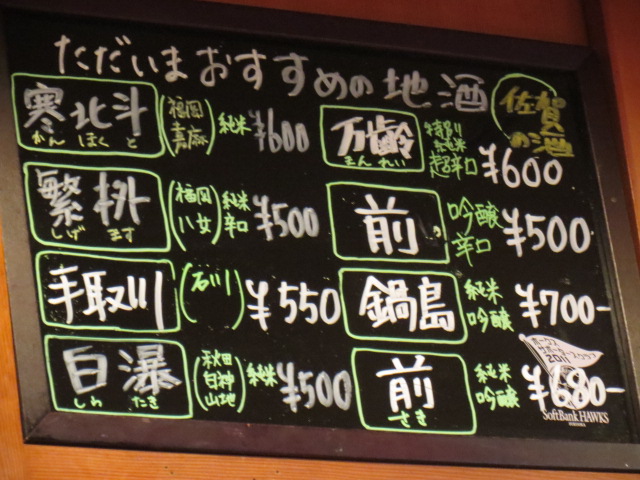 ただいまおすすめの地酒
佐賀
の酒
寒北斗
かん ほく と
(福岡
嘉麻)
純米
¥600
繁桝
しげ ます
(福岡
八女)
純米
辛口
¥500
手取川
(石川)
¥550
白瀑
しら たき
(秋田
白神
山地)
純米
¥500
万齢
まんれい
特別
純米
超辛口
¥600
前
吟醸
辛口
¥500
鍋島
純米
吟醸
¥700-
前
さき
純米
吟醸
¥680-
ホークス
サポーターズクラブ
2011
SoftBank HAWKS